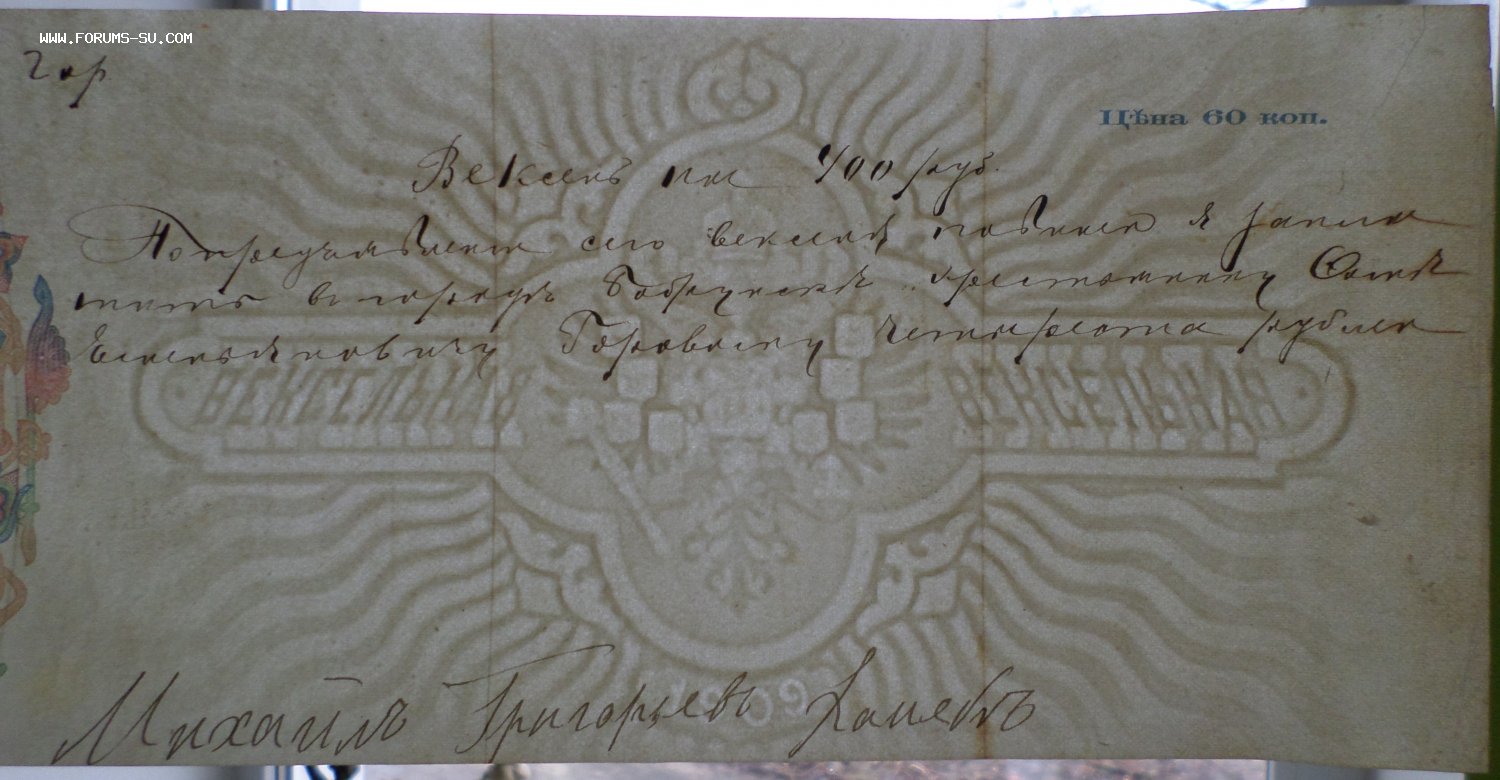 WWW.FORUMS-SU.COM
Гор
Цѣна 60 коп.
Вексель на 400 руб.
По предъявлении сего векселя повинен я запла
тить в городѣ Бобруйскѣ крестьянину
Емельяновичу Боровскому четыреста рублей
ВЕКСЕЛЬНАЯ ВЕКСЕЛЬНАЯ
Михаилъ Григорьевъ